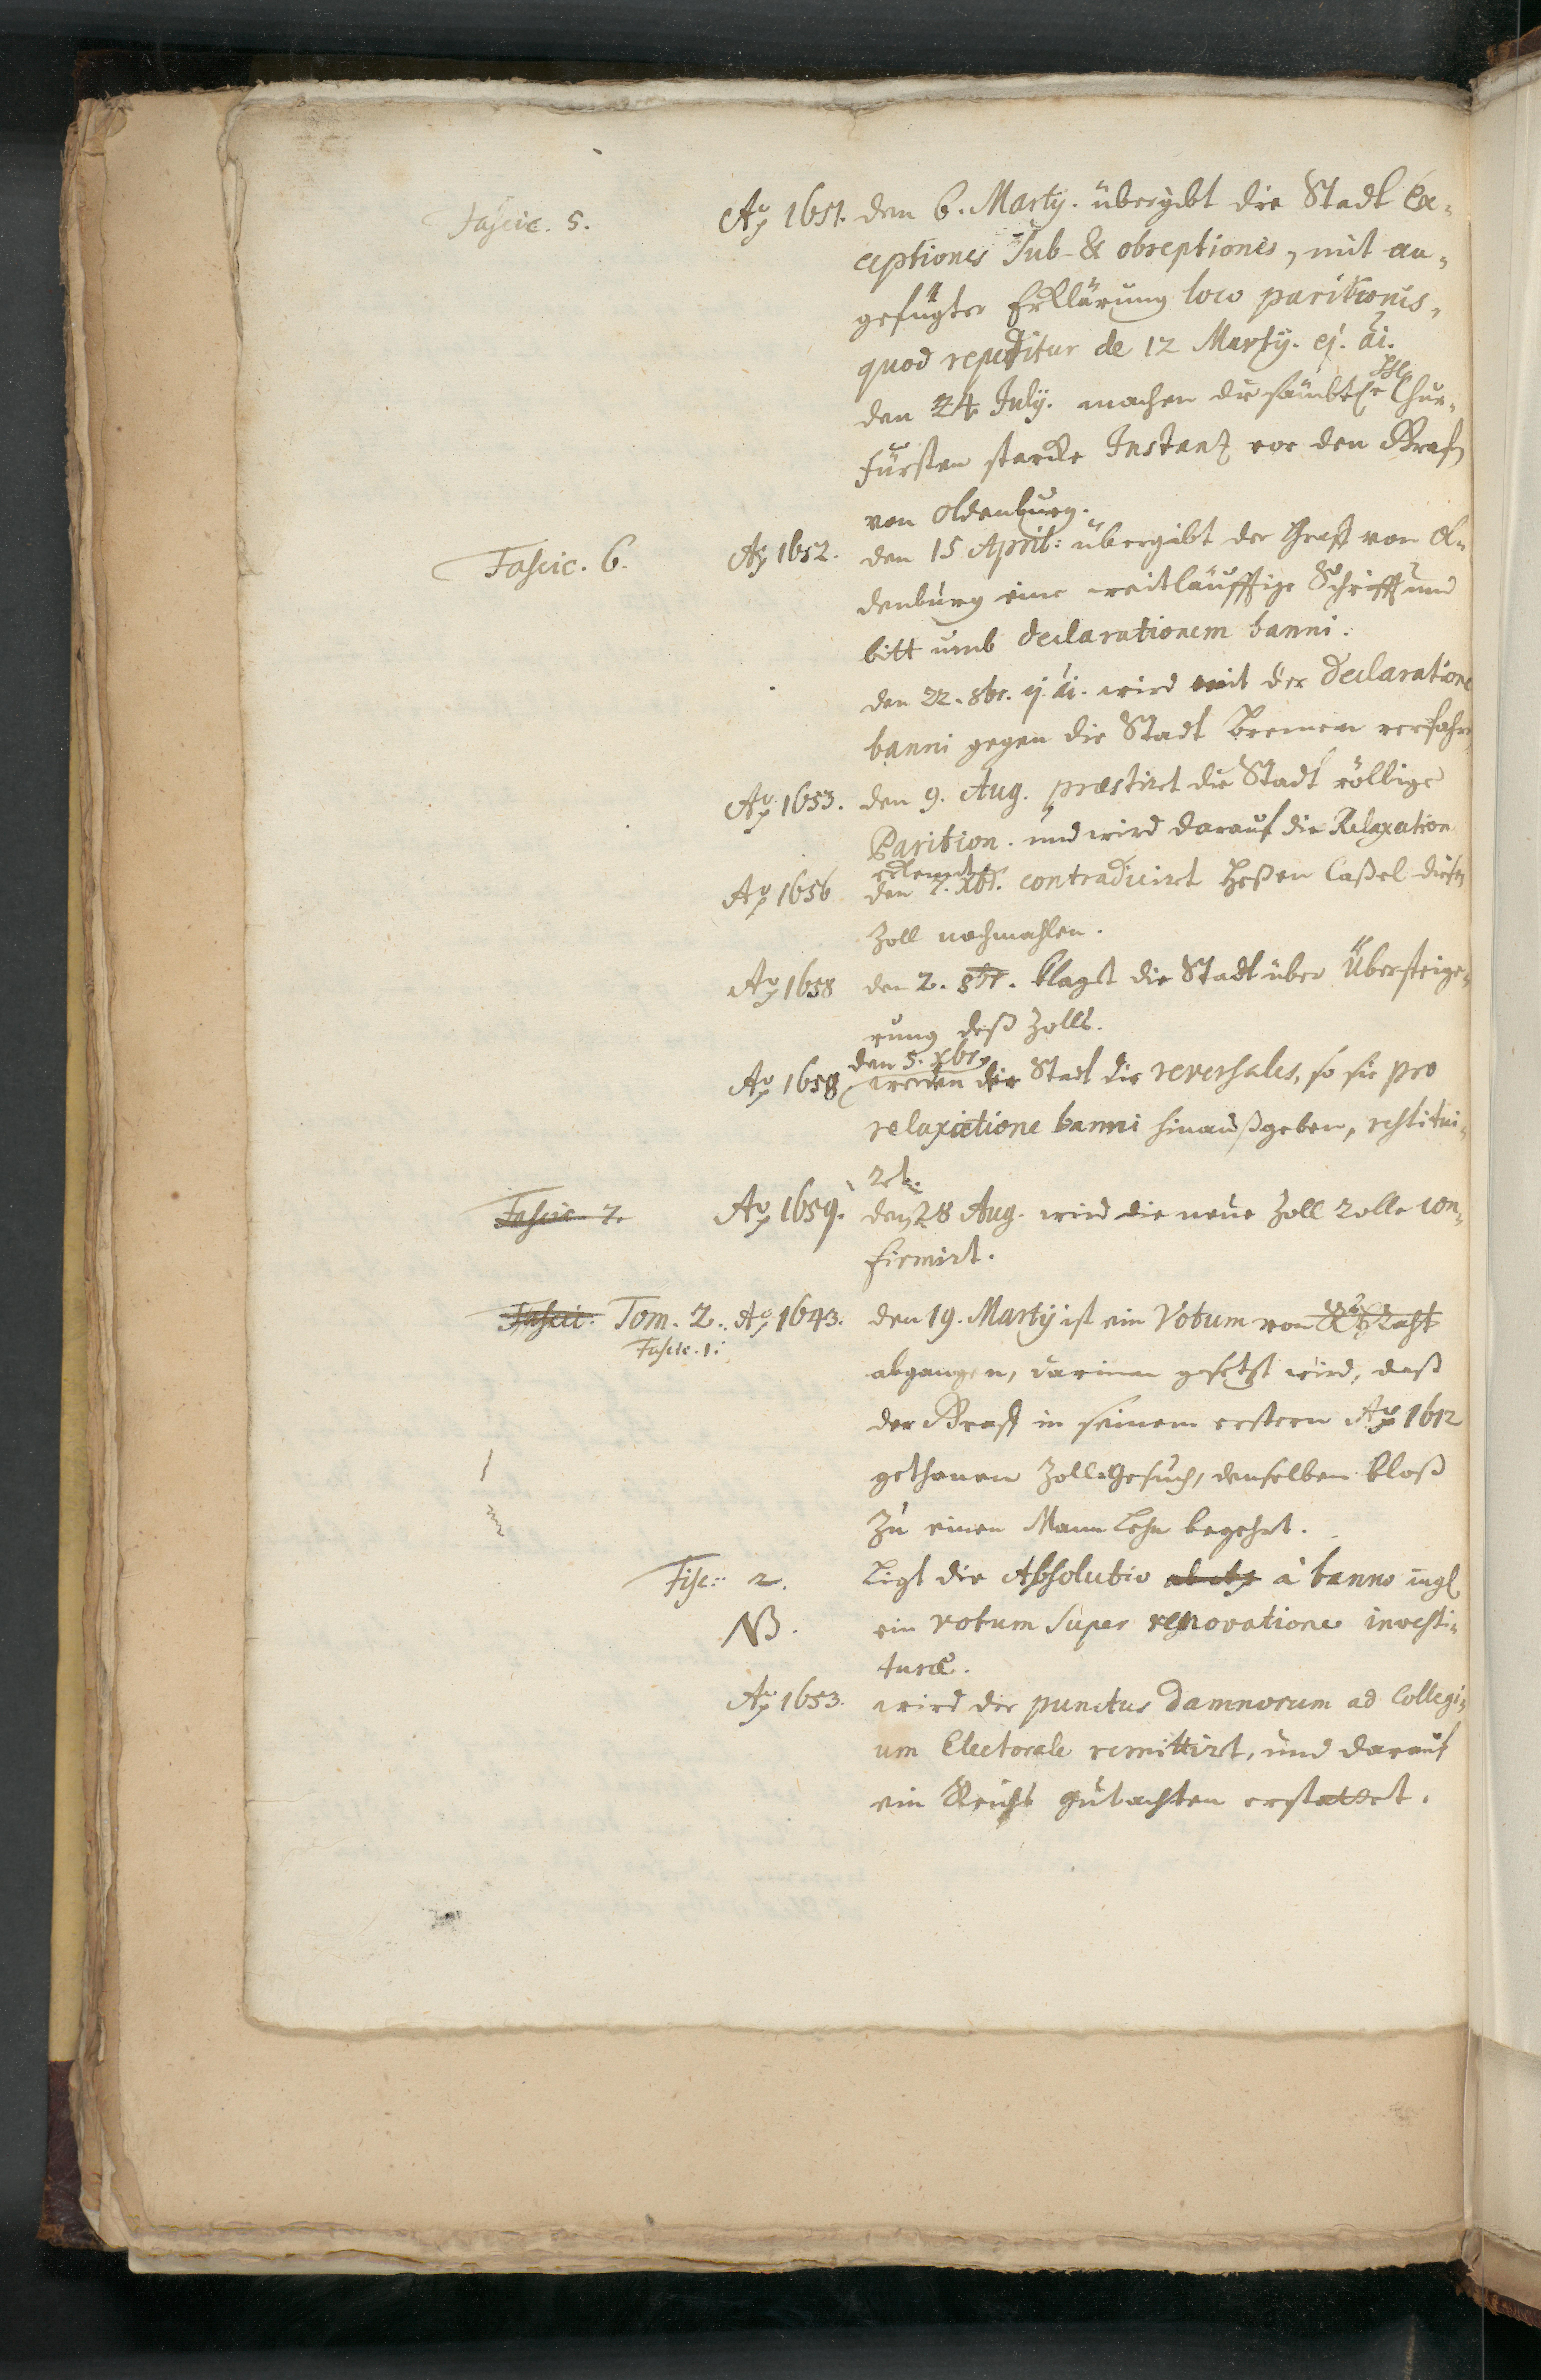 Fascic. 5. Aō 1651. den 6. Martÿ. übergibt die Stadt Ex=
ceptiones sub- & obreptionis, mit an=
gefügter Erklärung loco paritionis,
quod repetitur de 12 Martÿ. ej. ai.
den 24 Julÿ. machen die sämbtl. Chur=
fürsten starcke Instantz vor den Graf
von Oldenburg.
Fascic. 6. Aō 1652. den 15 April: übergibt der Graff von Ol=
denburg eine weitläuffige Schrifft und
bitt umb declarationem banni.
den 22. 8br. ej. ai. wird mit der declaratione
banni gegen die Stadt Bremen verfahrn
Aō 1653. den 9. Aug. præstirt die Stadt völlige
Parition. und wird darauf die Relaxation
erkennt.
Aō 1656 den 7. Xbr. contradicirt Heßen Caßel diesen
Zoll nochmahlen.
Aō 1658 den 2. 8br. klagt die Stadt über Übersteige=
rung deß Zolls.
den 5. xbr.
Aō 1658 werden der Stadt die reversales, so sie pro
relaxatione banni hinaußgeben, restitui=
rt.
Fascic. 7. Aō 1659. den 28 Aug. wird die neue Zoll Rolle con=
firmirt.
Fascic. Tom. 2. Aō 1643. den 19. Martÿ ist ein Votum von
Fascic. 1. abgangen, darinnen gesetzt wird, daß
der Graff in seinem erstern Aō 1612
gethanen Zoll Gesuch, denselben bloß
Zu einen Mann Lehn begehrt.
Fisc: 2. Ligt die Absolutio à banno ingl.
NB. ein votum super renovatione investi=
turæ.
Aō 1653. wird der punctus damnorum ad Collegi=
um Electorale remittirt, und darauf
ein Reichs gutachten erstattet.